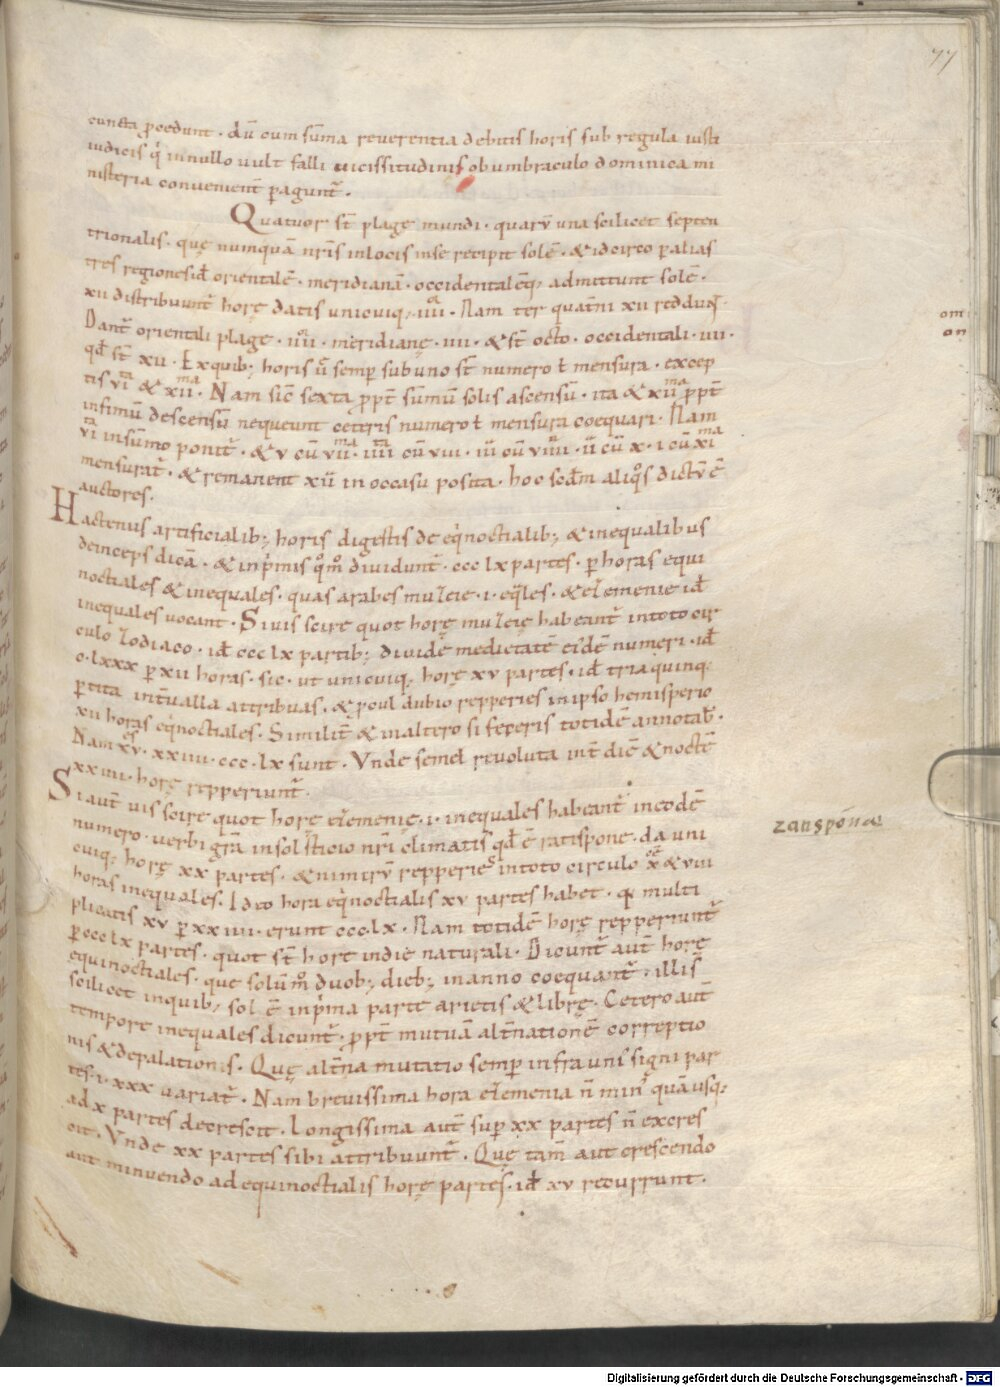 77
cuncta ꝓcedunt · dū cum sūma reuerentia debitis horis sub regula iusti
iudicis q' innullo uult falli uicissitudinis obumbraculo dominica mi
nisteria convenient ꝑagunt᷑ .
Quatuor st̄ plagę mundi · quarū una scilicet septen
trionalis · quę numquā nr̄is inlocis inse recipit solē · & idcirco ꝑ alias
tres regiones id̄ orientalē · meridianā · occidentalēq; admittunt solē ·
xii distribuunt᷑ horę datis unicuiq; iiii · Nam ter quat̄ni xii reddunt᷑ ·
Dant᷑ orientali plagę · iiii · meridianę · iiii · & st̄ octo · occidentali · iiii ·
qd̄ st̄ xii · Ex quib; horis ii semꝑ sub uno st̄ numero ł mensura · excep
tis vi ta & xii ma · Nam sic̄ sexta ꝓpt̄ sūmū solis ascensū · ita & xii ma ꝓpt̄
infimū descensū nequeunt ceteris numero ł mensura coequari · Nam
vi ta in sūmo ponit᷑ · & v cū vii ma · iiii ta cū viii · iii cū viiii · ii cū x · i cū xi ma
mensurat᷑ · & remanent xii in occasu posita · hoc scd̄m aliq°s dictū ē
auctores .
Hactenus artificialib; horis digestis de eq'noctialib; & inequalibus
deinceps dicā · & inp'mis q°m° dividunt᷑ · ccc lx partes · ꝑ horas equi
noctiales & inequales · quas arabes
inequales vocant · Si uis scire quot horę habeant᷑ intoto cir
culo zodiaco · id̄ ccc lx partib; divide medietatē ei'dē numeri · id̄
c·lxxx ꝑ xii horas · sic · ut unicuiq; horę xv partes · id̄ tria quinq;
ꝑtita int̄ualla attribuas · & ꝓcul dubio repperies in ipso hemisperio
xii horas eq'noctiales · Similit̄ & in altero si feceris totidē annotab̄ ·
Nam xv es · xxiiii · ccc · lx sunt · Vnde semel revoluta int̄ diē & noctē
xxiiii · horę repperiunt᷑ .
Si aut̄ uis scire quot horę · i · inequales habeant᷑ in eodē
numero · uerbi grā in solsticio nr̄i climatis qd̄ ē ratispone · da uni
zanspónae
cuiq; horę xx partes · & nimirū repperies intoto circulo x ce & viii
horas inequales . Idcō hora eq'noctialis xv partes habet · q multi
plicatis xv ꝑ xxiiii · erunt ccc·lx · Nam totidē horę repperiunt᷑
ꝑ ccc lx partes · quot st̄ horę in die naturali · Dicunt᷑ aut̄ horę
equinoctiales · quę solūm° duob; dieb; in anno coequant᷑ · illis
scilicet in quib; sol ē inp'ma parte arietis & librę · Cetero aut̄
tempore inequales dicunt᷑ · ꝓpt̄ mutuā alt̄nationē correptio
nis & depalationis . Quę alt̄na mutatio semꝑ infra uni' signi par
tes · i · xxx variat᷑ . Nam brevissima hora n̄ min' quā usq;
ad x partes decrescit . Longissima aut̄ suꝑ xx partes n̄ excres
cit . Vnde xx partes sibi attribuunt᷑ . Quę tam̄ aut crescendo
aut minuendo ad equinoctialis horę partes · id̄ xv recurrunt .
Digitalisierung gefördert durch die Deutsche Forschungsgemeinschaft - DFG